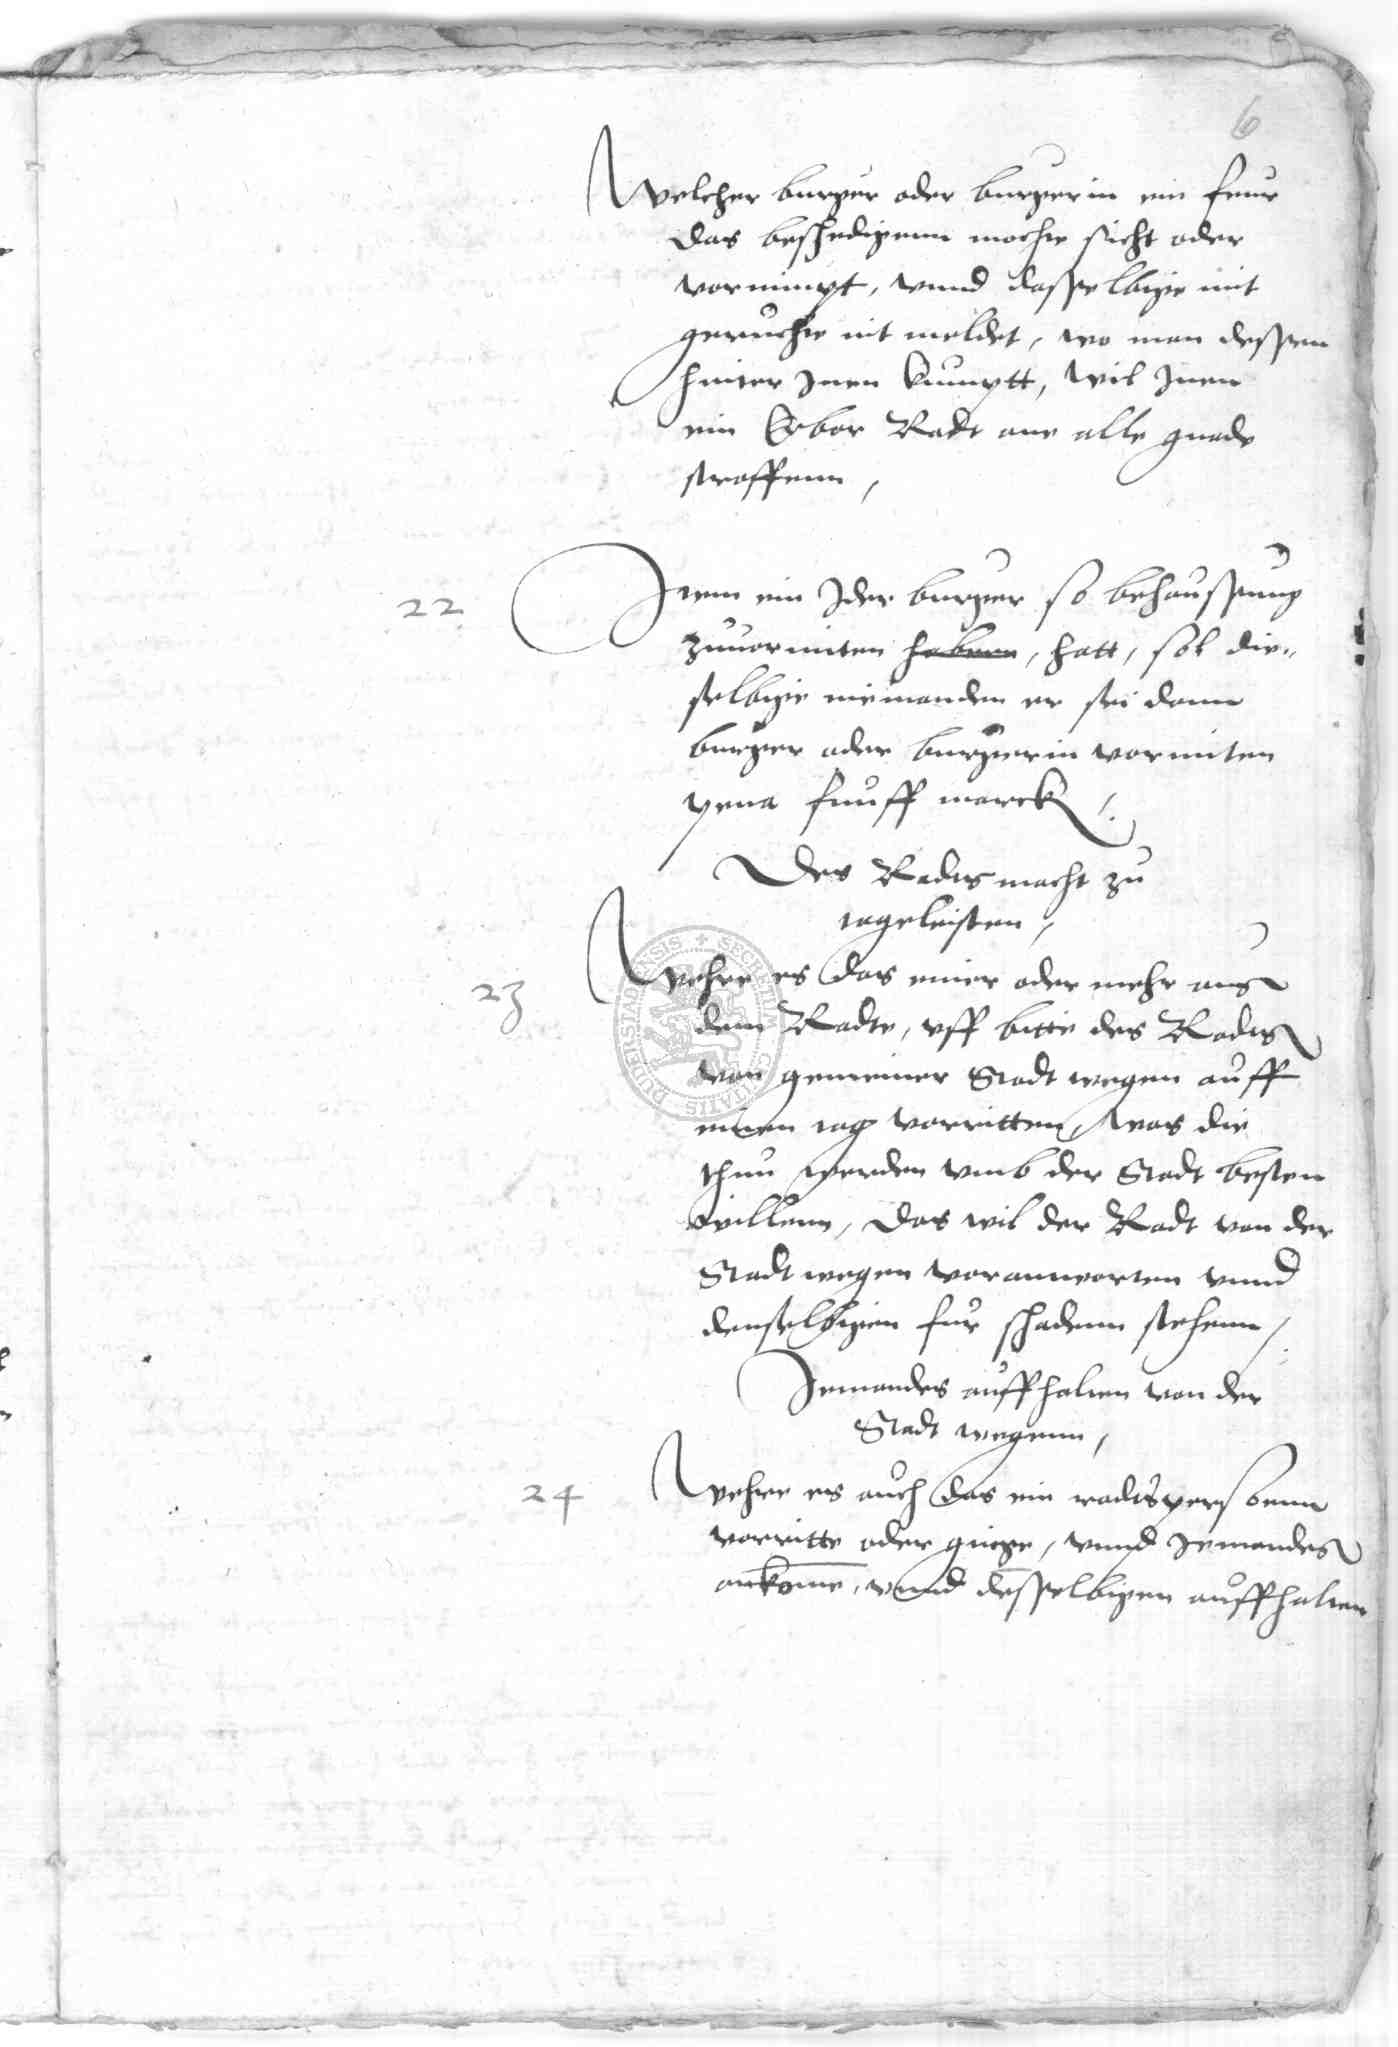 6
Welcher burger oder burgerin ein feur
das beschedigenn mochte sicht oder
vornimpt, vnnd dasselbige mit
geruchte nit meldet, wo man dessen
hinter Inen kumptt, wil Inen
ein Erbar Radt ane alle gnade
straffenn,
22 Item ein Ider burger so behaussung
zuuormiten habenn, hatt, sol die-
selbige niemanden er sei dann
burger oder burgerin vormiten
pena funff marck
Des Radts macht zu
tageleisten,
23 Wehre es das einer oder mehr aus
dem Radte, vff bitte des Radts
von gemeiner Stadt wegen auff
einen tag vorritten, was die
thun werden vmb der Stadt besten
willenn, das wil der Radt von der
Stadt wegen vorantworten vnnd
denselbigen fur schadenn stehenn,
Jemandes auffhalten von der
Stadt wegenn,
24 Wehre es auch das ein radtspersonn
vorritte oder ginge, vnnd Jemandes
ankome, vnnd desselbigen auffhalten
SECRETUM CIVITATIS DUDERSTADENSIS